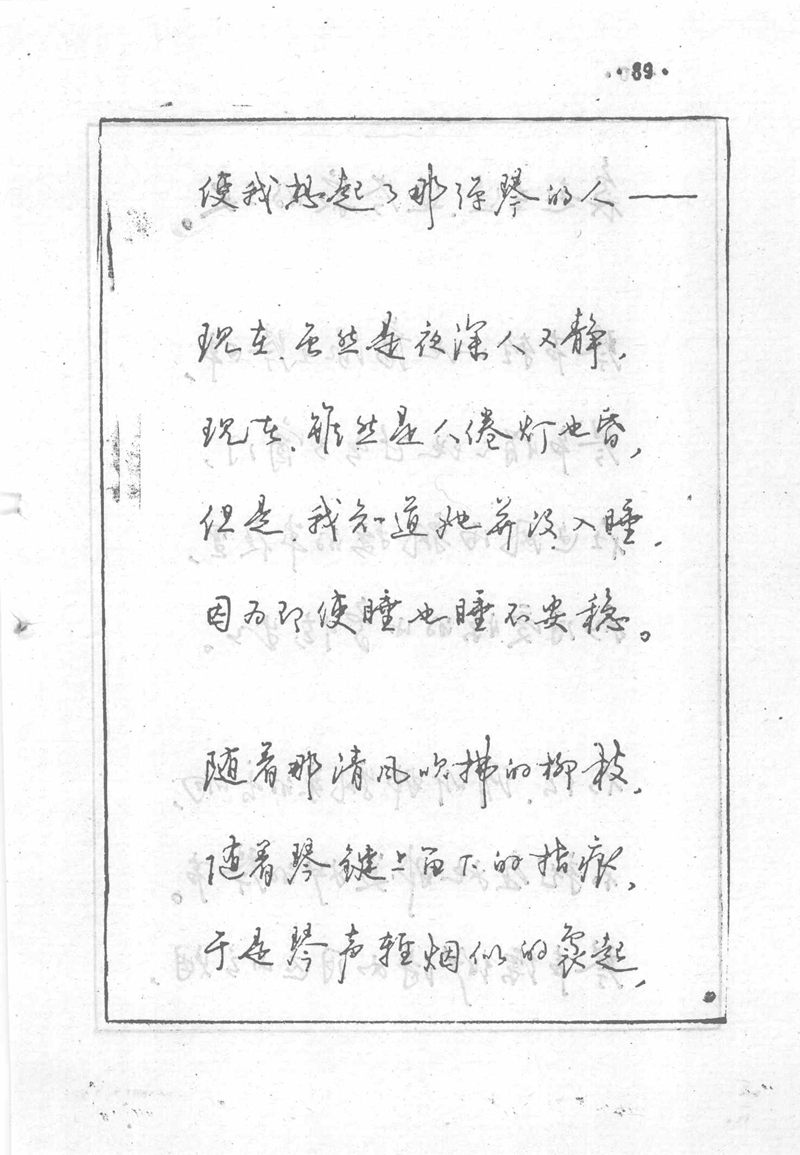 ·89·
使我想起了那弹琴的人——
现在,虽然是夜深人又静,
现在,虽然是人倦灯也昏,
但是,我知道她并没入睡,
因为即使睡也睡不安稳。
随着那清风吹拂的柳枝,
随着琴键上留下的指痕,
于是琴声轻烟似的袅起,